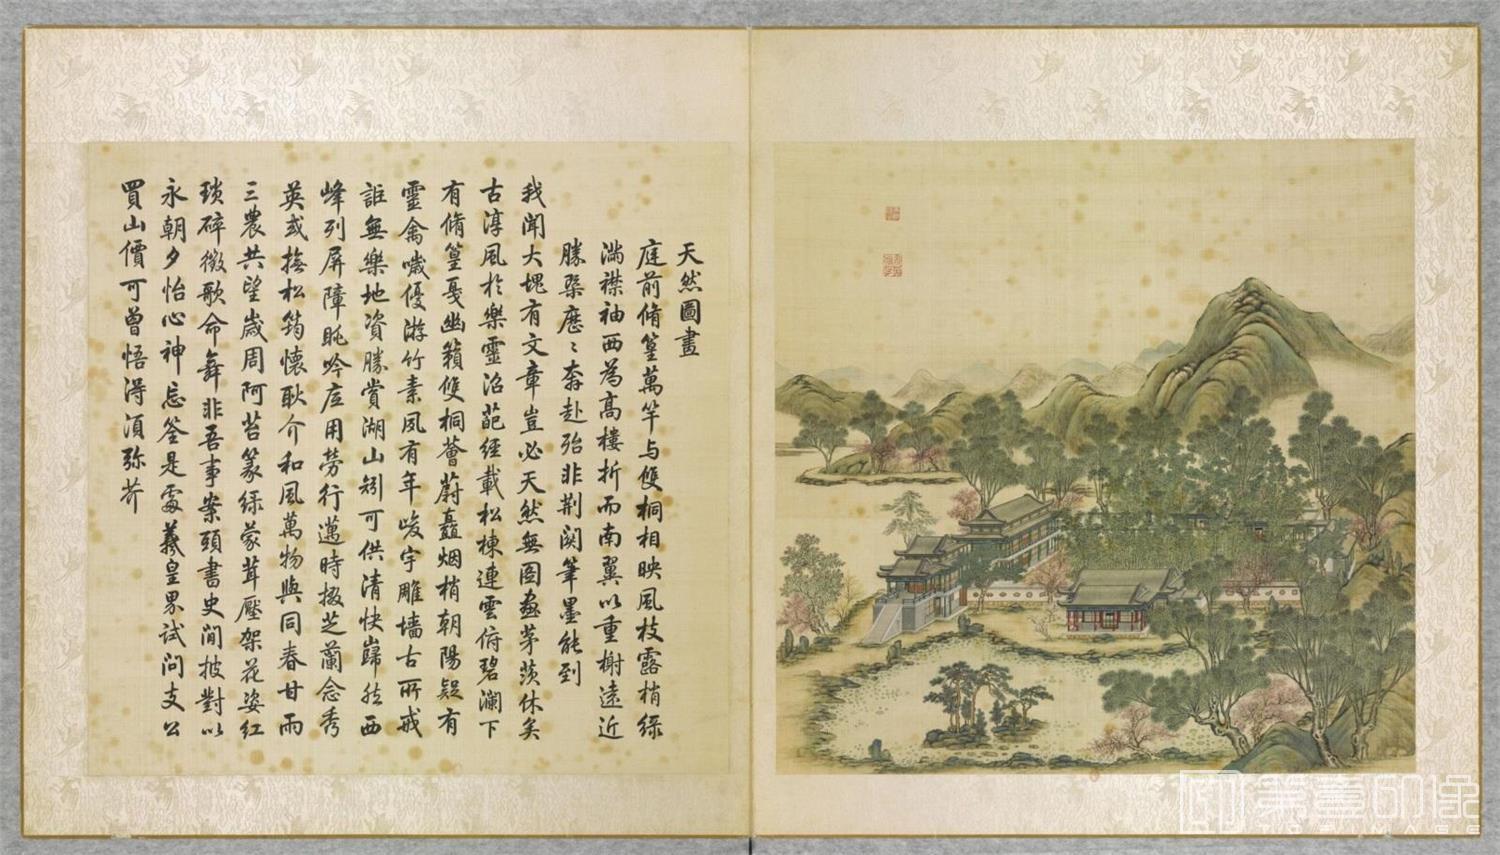 天然圖畫
庭前脩篁萬竿与雙桐相映風枝露梢綠
滿襟袖西為高樓折而南翼以重榭遠近
勝槩歷〻奔赴殆非荆關筆墨能到
我聞大塊有文章豈必天然無圖畫茅茨休矣
古淳風於樂靈沼葩經載松棟連雲俯碧瀾下
有脩篁戞幽籟雙桐薈蔚矗烟梢朝陽疑有
靈禽噦優游竹素夙有年峻宇雕墻古所戒
詎無樂地資勝賞湖山矧可供清快歸然西
峰列屏障眺吟底用勞行邁時掇芝蘭念秀
英或撫松筠懷耿介和風萬物與同春甘雨
三農共望歲周阿苔篆綠蒙茸壓架花姿紅
瑣碎徵歌命舞非吾事案頭書史閒披對以
永朝夕怡心神忘筌是處羲皇界試問支公
買山價可曾悟得須弥芥
第壹印像
TOP IMAGE